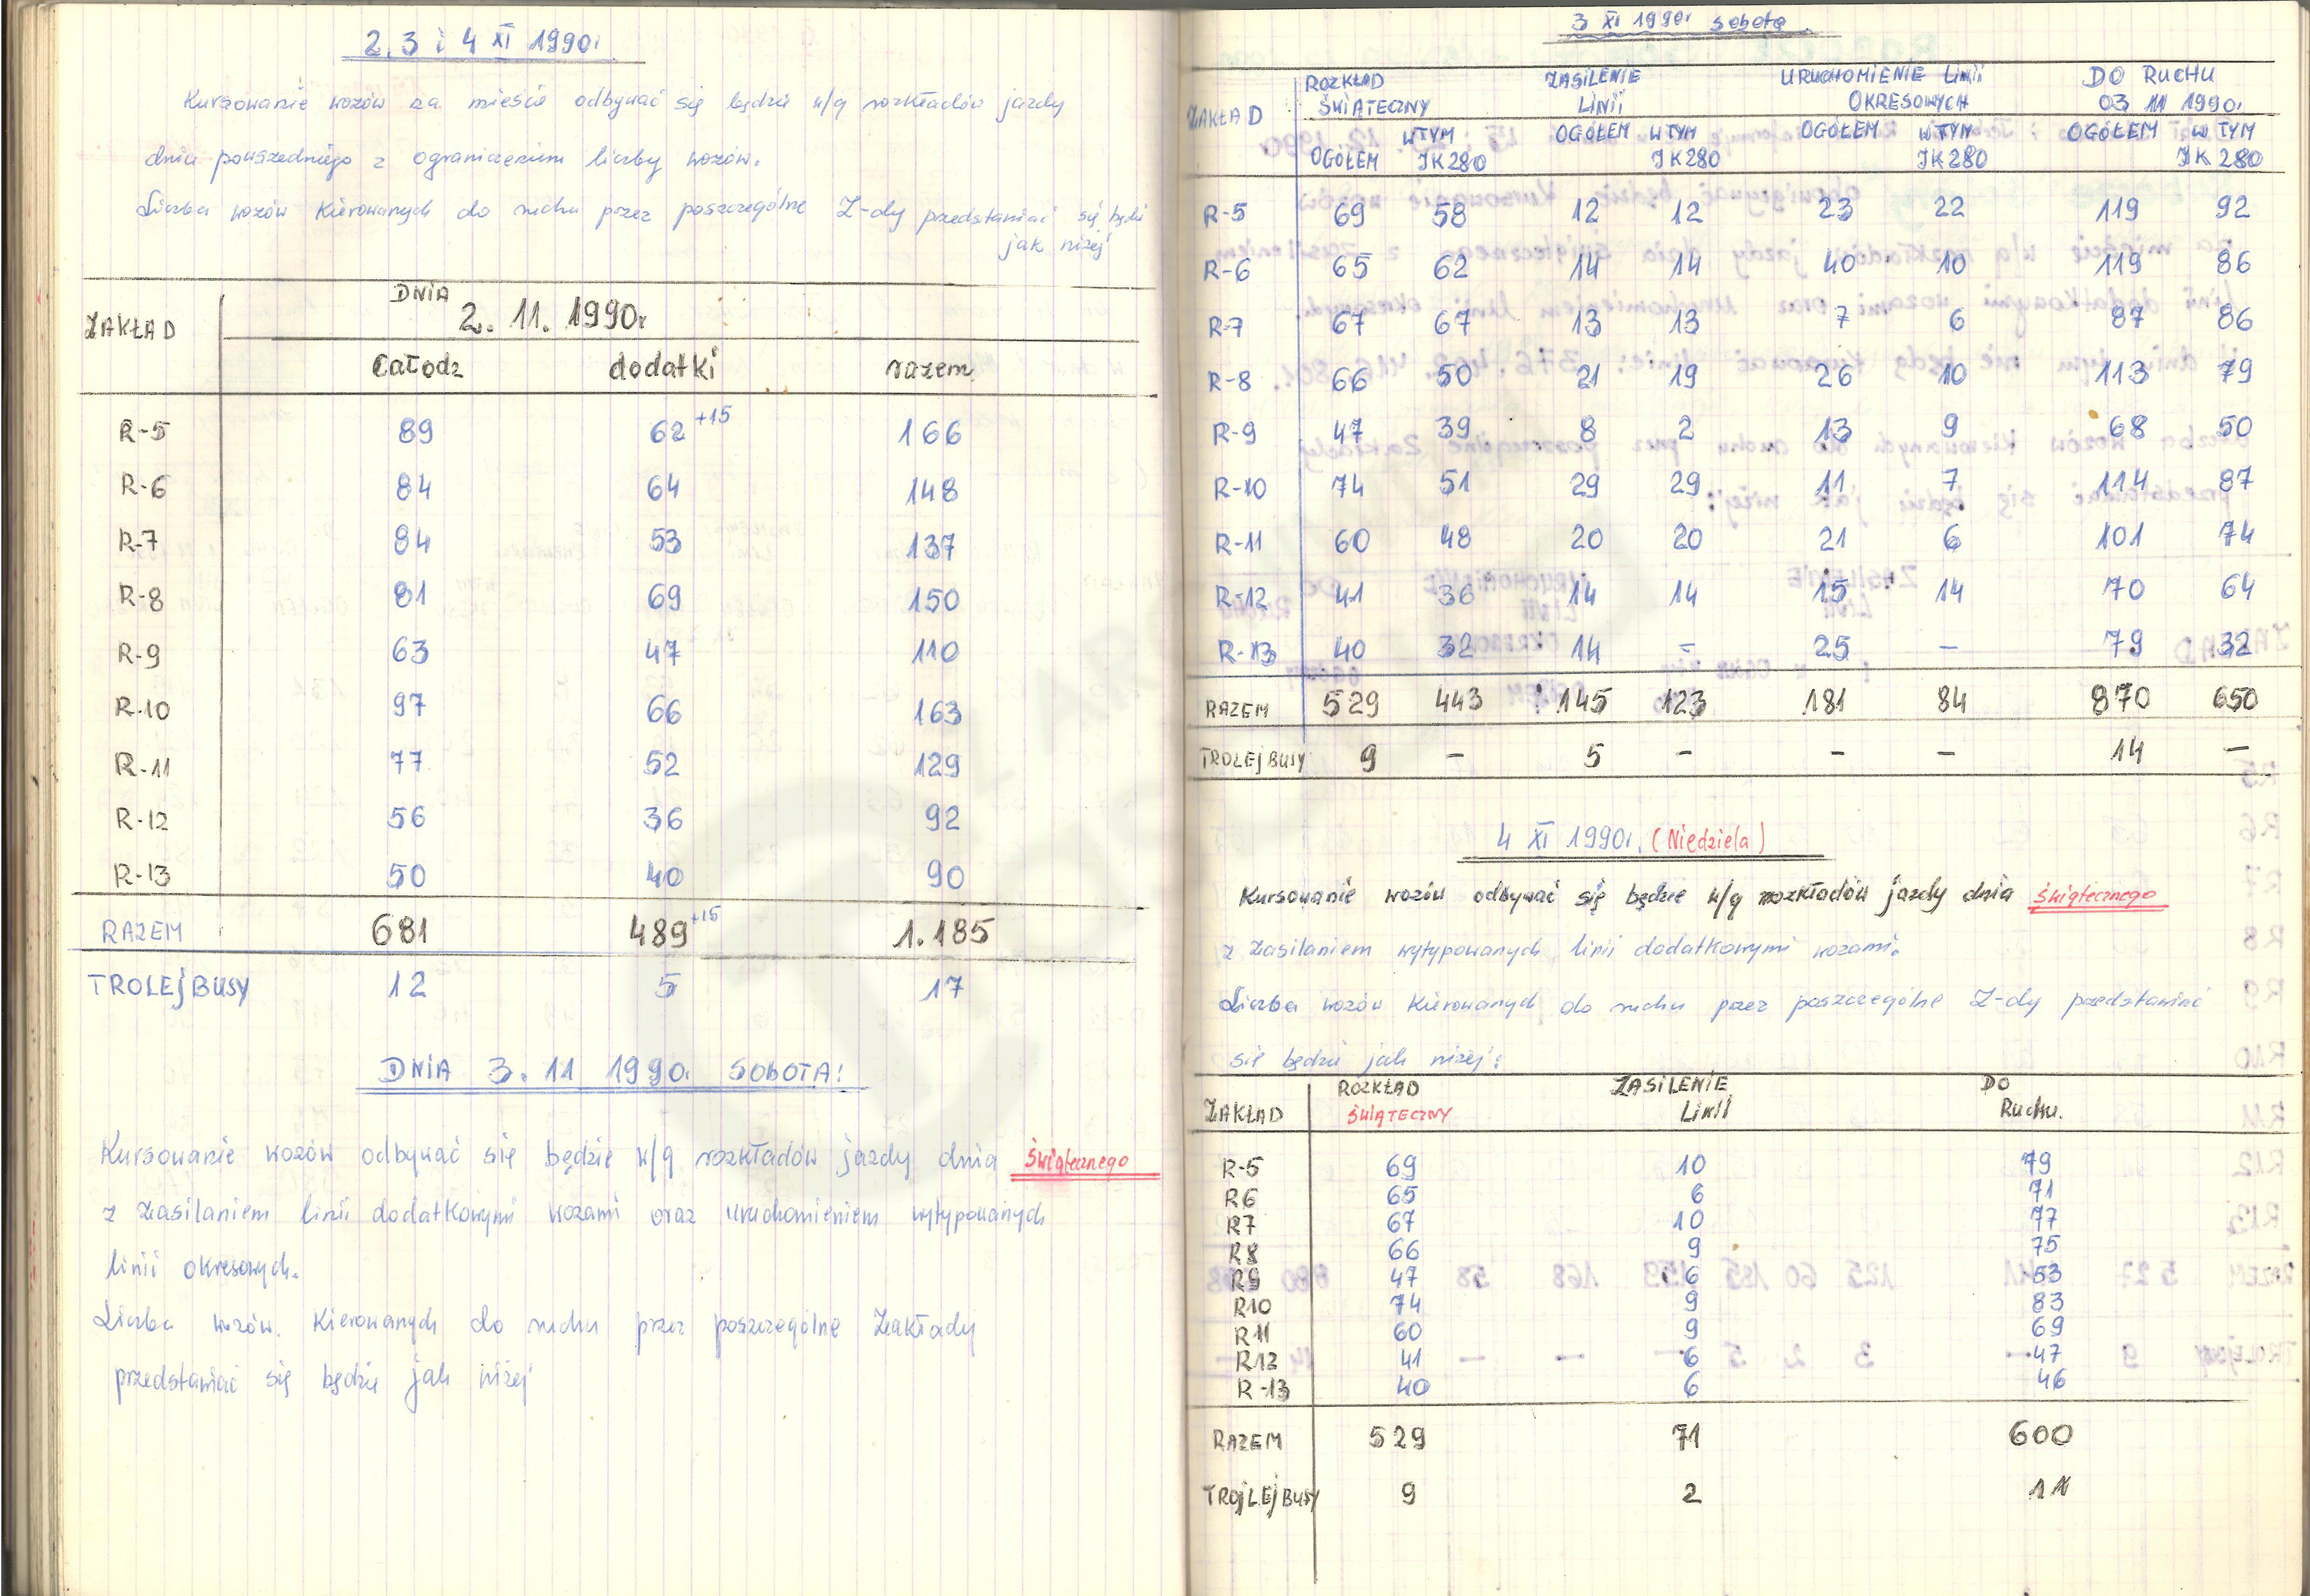 2, 3 i 4 XI 1990r
Kursowanie wozów na mieście odbywać się będzie w/g rozkładów jazdy
dnia powszedniego z ograniczeniem liczby wozów.
Liczba wozów kierowanych do ruchu przez poszczególne Z-dy przedstawiać się będzie
jak niżej
ZAKŁAD DNIA 2. 11. 1990r
całodz dodatki razem
R-5 89 62 +15 166
R-6 84 64 148
R-7 84 53 137
R-8 81 69 150
R-9 63 47 110
R-10 97 66 163
R-11 77 52 129
R-12 56 36 92
R-13 50 40 90
RAZEM 681 489 +15 1.185
TROLEJBUSY 12 5 17
DNIA 3. 11 1990r SOBOTA!
Kursowanie wozów odbywać się będzie w/g rozkładów jazdy dnia świątecznego
z zasilaniem linii dodatkowymi wozami oraz uruchomieniem wytypowanych
linii okresowych.
Liczba wozów kierowanych do ruchu przez poszczególne Zakłady
przedstawiać się będzie jak niżej
3 XI 1990r sobota
ZAKŁAD ROZKŁAD ZASILENIE URUCHOMIENIE LINII DO RUCHU
ŚWIĄTECZNY LINII OKRESOWYCH 03 11 1990r
OGÓŁEM W TYM JK280 OGÓŁEM W TYM JK280 OGÓŁEM W TYM JK280 OGÓŁEM W TYM JK280
R-5 69 58 12 12 23 22 119 92
R-6 65 62 14 14 40 10 119 86
R-7 67 67 13 13 7 6 87 86
R-8 66 50 21 19 26 10 113 79
R-9 47 39 8 2 13 9 68 50
R-10 74 51 29 29 11 7 114 87
R-11 60 48 20 20 21 6 101 74
R-12 41 36 14 14 15 14 70 64
R-13 40 32 14 - 25 - 79 32
RAZEM 529 443 145 123 181 84 870 650
TROLEJBUSY 9 - 5 - - - 14 -
4 XI 1990r. (Niedziela)
Kursowanie wozów odbywać się będzie w/g rozkładów jazdy dnia świątecznego
z zasilaniem wytypowanych linii dodatkowymi wozami.
Liczba wozów kierowanych do ruchu przez poszczególne Z-dy przedstawiać
się będzie jak niżej:
ZAKŁAD ROZKŁAD ZASILENIE DO
ŚWIĄTECZNY LINII Ruchu.
R-5 69 10 79
R6 65 6 71
R7 67 10 77
R8 66 9 75
R9 47 6 53
R10 74 9 83
R11 60 9 69
R12 41 6 47
R-13 40 6 46
RAZEM 529 71 600
TROJLEJBUSY 9 2 11